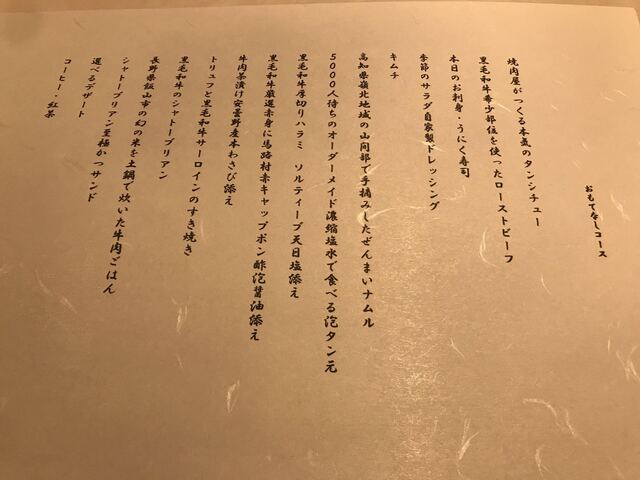 おもてなしコース
焼肉屋がつくる本気のタンシチュー
黒毛和牛希少部位を使ったローストビーフ
本日のお刺身・うにく寿司
季節のサラダ自家製ドレッシング
キムチ
高知県嶺北地域の山間部で手摘みしたぜんまいナムル
5000人待ちのオーダーメイド濃縮塩水で食べる泡タン元
黒毛和牛厚切りハラミ ソルティーブ天日塩添え
黒毛和牛厳選赤身に馬路村赤キャップポン酢泡醤油添え
牛肉茶漬け安曇野産本わさび添え
トリュフと黒毛和牛サーロインのすき焼き
黒毛和牛のシャトーブリアン
長野県飯山市の幻の米を土鍋で炊いた牛肉ごはん
シャトーブリアン至極かつサンド
選べるデザート
コーヒー・紅茶